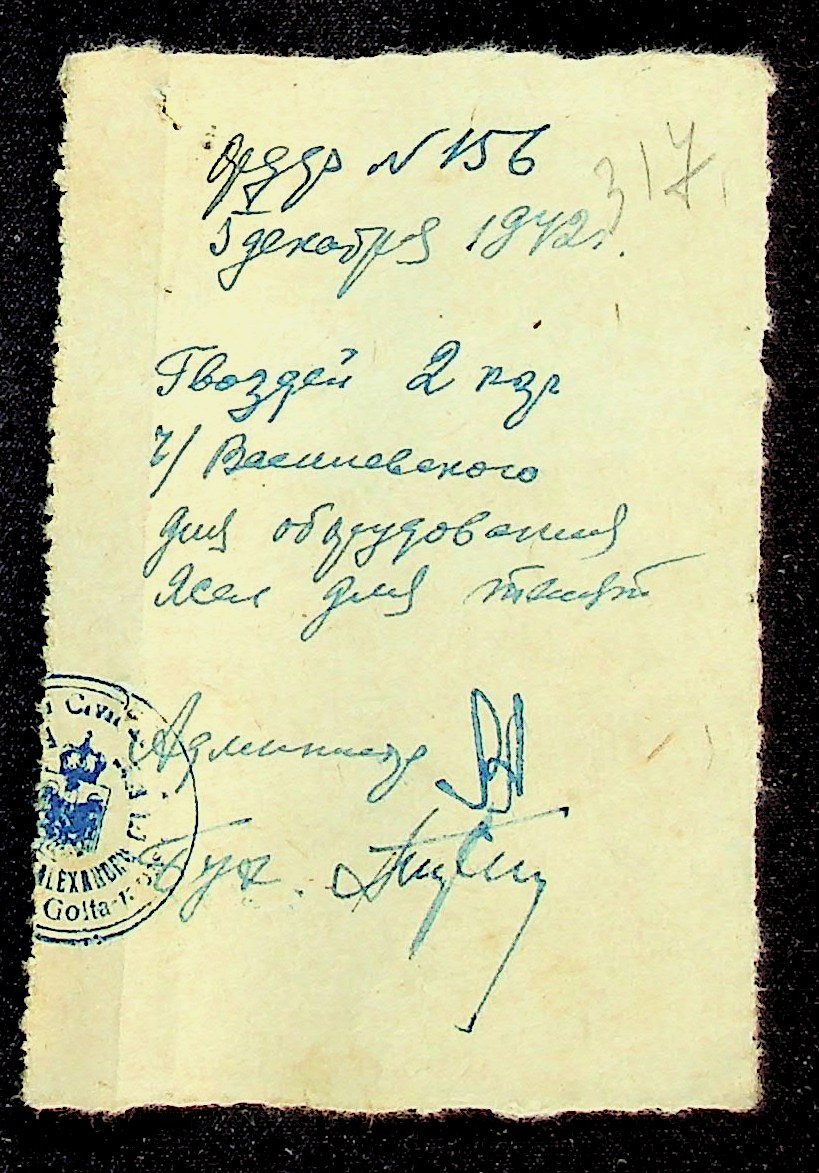 ордер N 156
317
5 декабря 1942 г.
Гвоздей 2 кгр
ч/ Васильевского
для оборудования
ясел для телят
Администр
Бух.
Civil
ALEXANDR
Golta